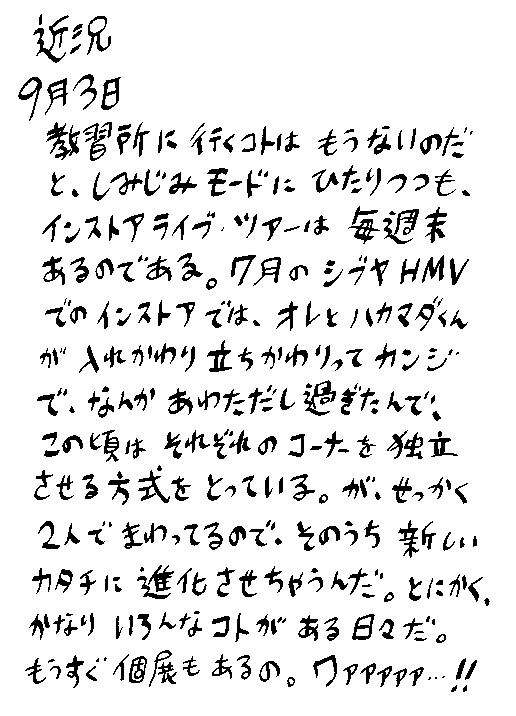 近況
9月3日
教習所に行くコトはもうないのだ
と、しみじみモードにひたりつつも、
インストアライブ・ツアーは毎週末
あるのである。7月のシブヤHMV
でのインストアでは、オレとハカマダくん
が入れかわり立ちかわりってカンジ
で、なんかあわただし過ぎたんで、
この頃はそれぞれのコーナーを独立
させる方式をとっている。が、せっかく
2人でまわってるので、そのうち新しい
カタチに進化させちゃうんだ。とにかく、
かなりいろんなコトがある日々だ。
もうすぐ個展もあるの。ワァァァァァ…!!